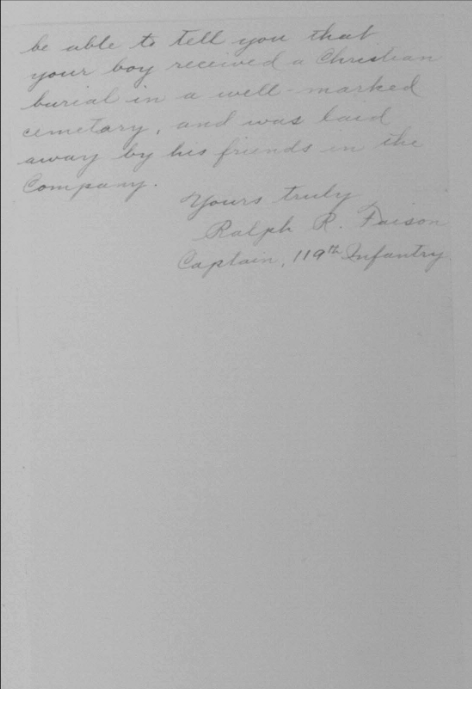 be able to tell you that
your boy received a Christian
burial in a well-marked
cemetary, and was laid
away by his friends in the
Company.
Yours truly
Ralph R. Faison
Captain, 119th Infantry